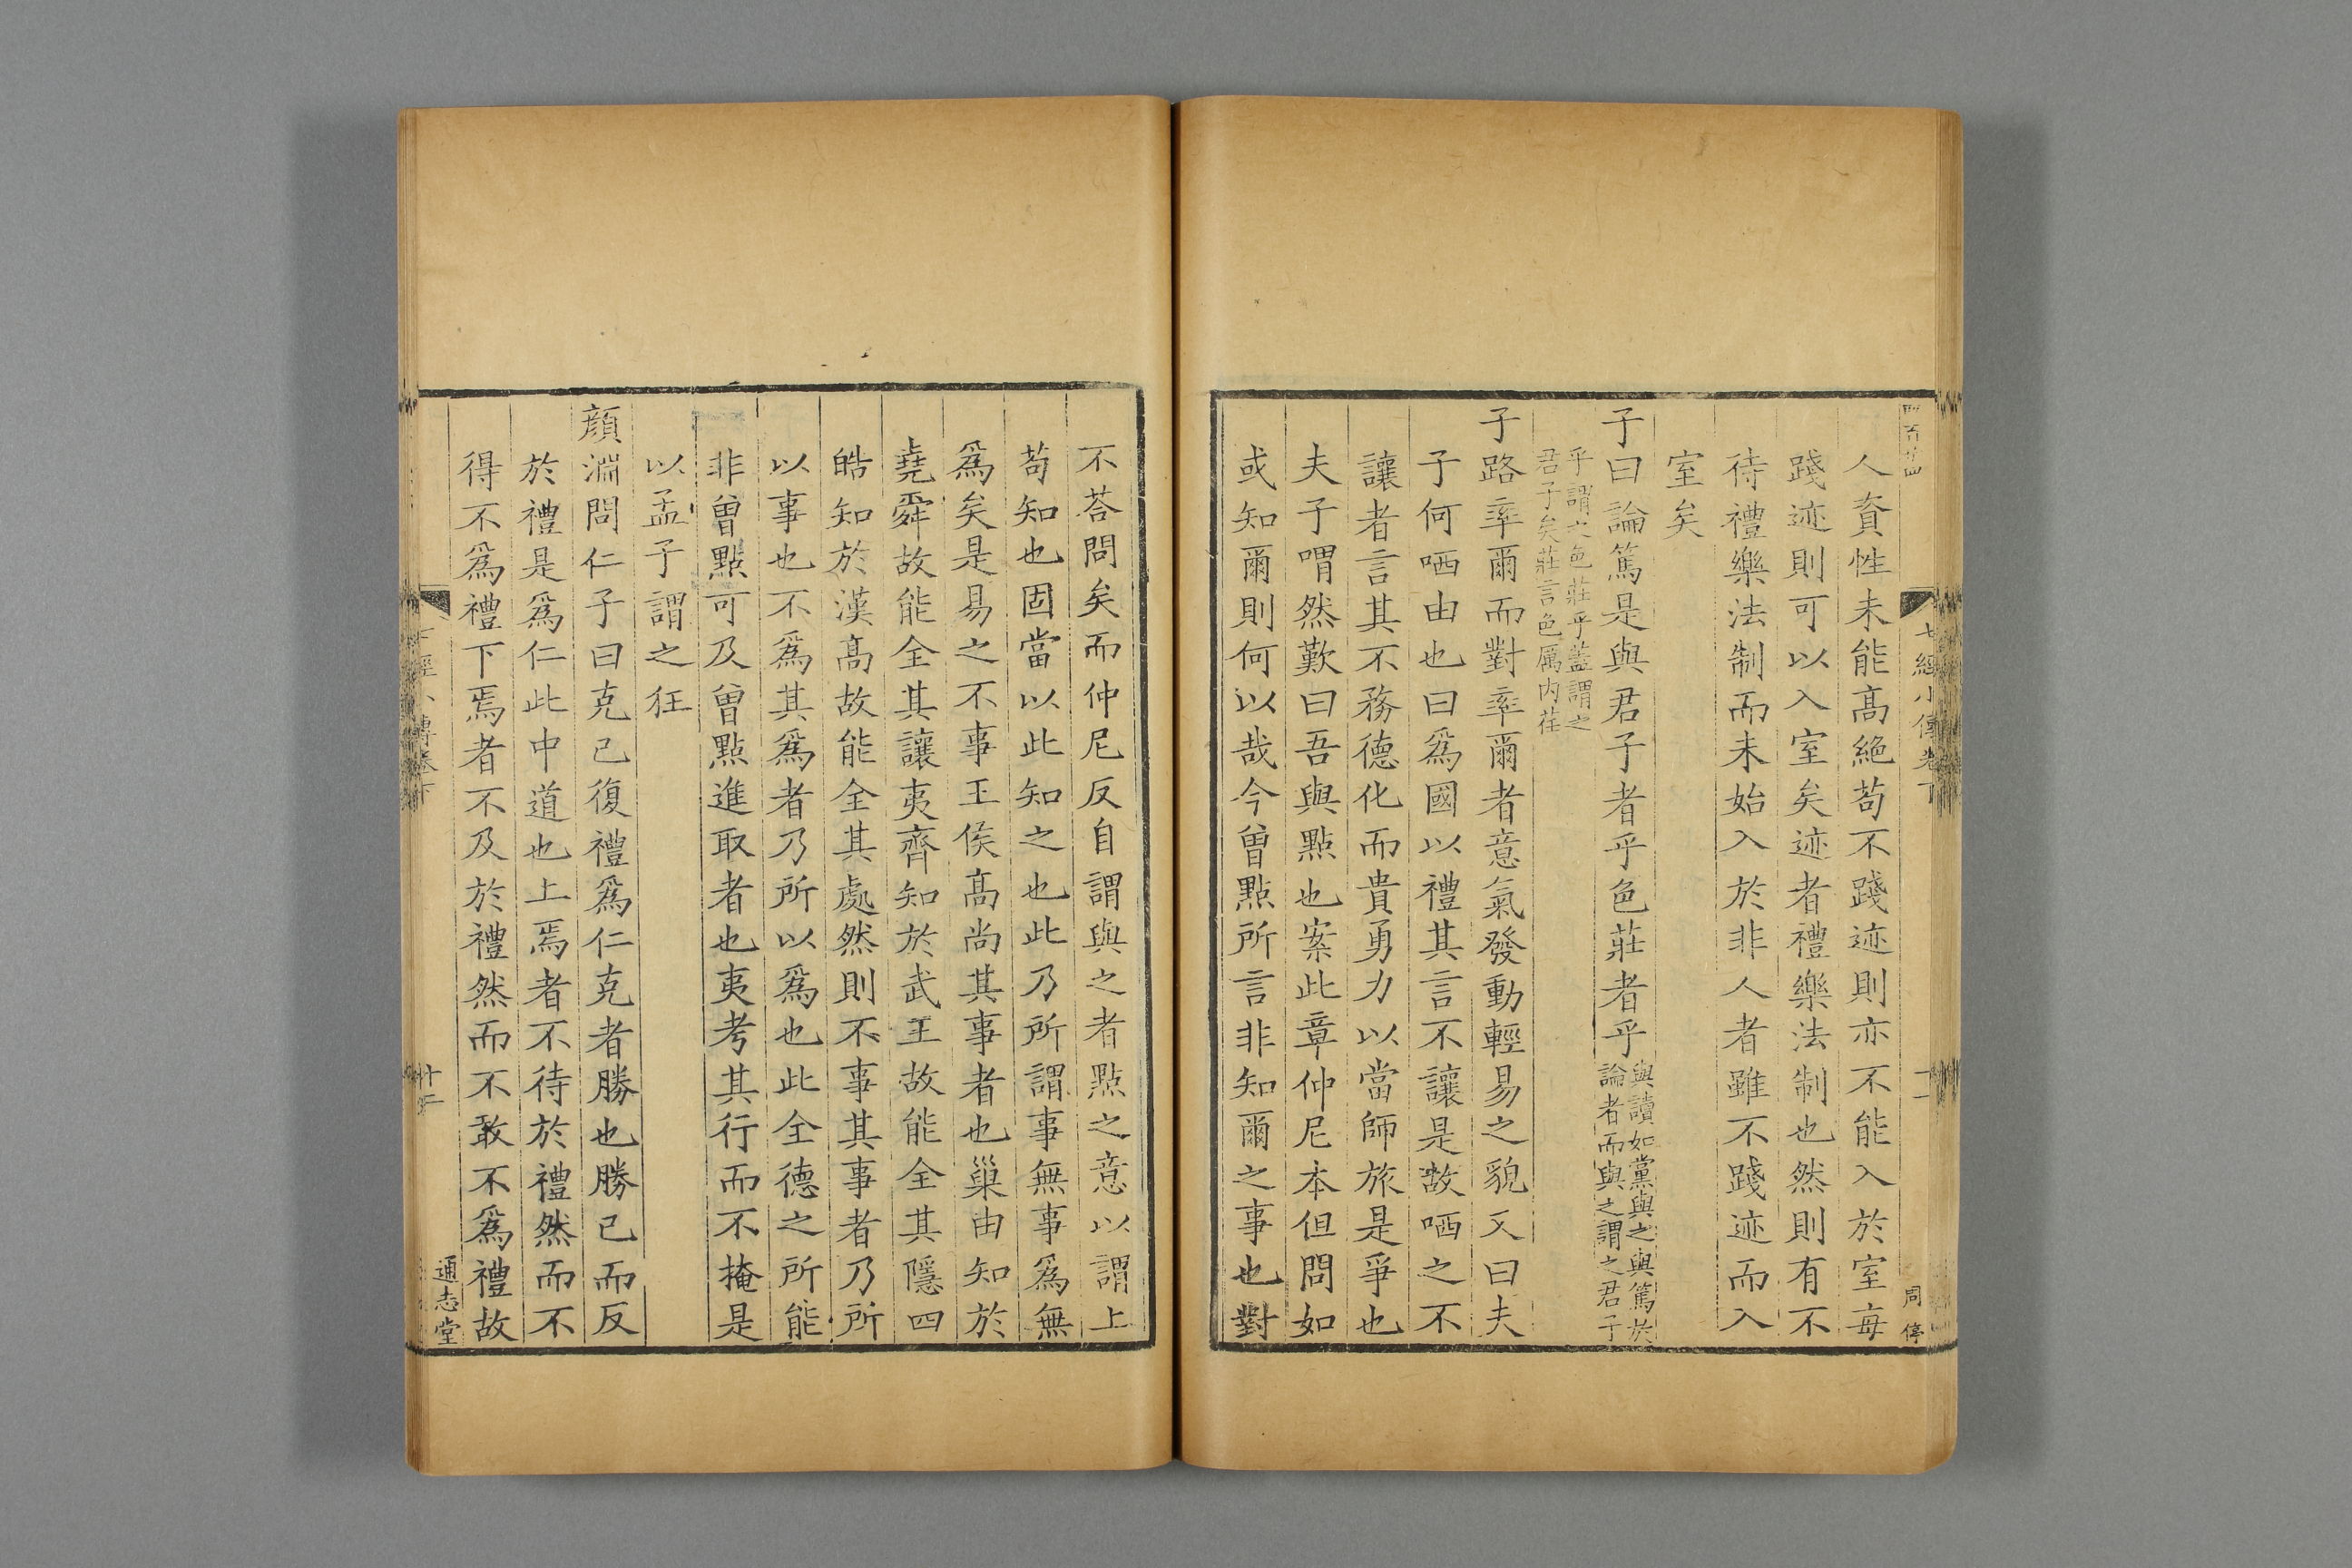 人資性未能髙絶苟不踐迹則亦不能入於室毎
踐迹則可以入室矣迹者禮樂法制也然則有不
待禮樂法制而未始入於非人者雖不踐迹而入
室矣
子曰論篤是與君子者乎色莊者乎與讀如黨與之與篤於
論者而與之謂之君子
乎謂之色莊乎蓋謂之
君子矣莊言色厲内荏
子路率爾而對率爾者意氣發動輕易之貌又曰夫
子何哂由也曰爲國以禮其言不讓是故哂之不
讓者言其不務德化而貴勇力以當師旅是爭也
夫子喟然歎曰吾與點也案此章仲尼本但問如
或知爾則何以哉今曾點所言非知爾之事也對
七經小傳卷下
周停
不荅問矣而仲尼反自謂與之者點之意以謂上
苟知也固當以此知之也此乃所謂事無事爲無
爲矣是易之不事王侯髙尚其事者也巢由知於
堯舜故能全其讓夷齊知於武王故能全其隱四
皓知於漢髙故能全其處然則不事其事者乃所
以事也不爲其爲者乃所以爲也此全德之所能
非曾點可及曾點進取者也夷考其行而不掩是
以孟子謂之狂
顔淵問仁子曰克己復禮爲仁克者勝也勝己而反
於禮是爲仁此中道也上焉者不待於禮然而不
得不爲禮下焉者不及於禮然而不敢不爲禮故
通志堂